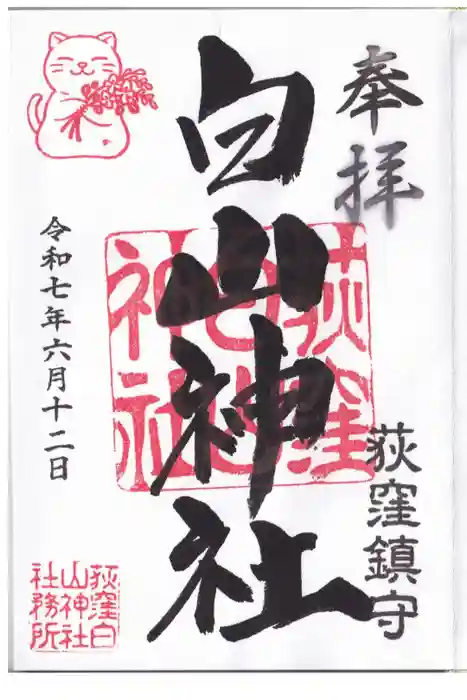 奉拝
荻窪鎮守
白山神社
荻窪
白山
神社
令和七年六月十二日
荻窪白
山神社
社務所